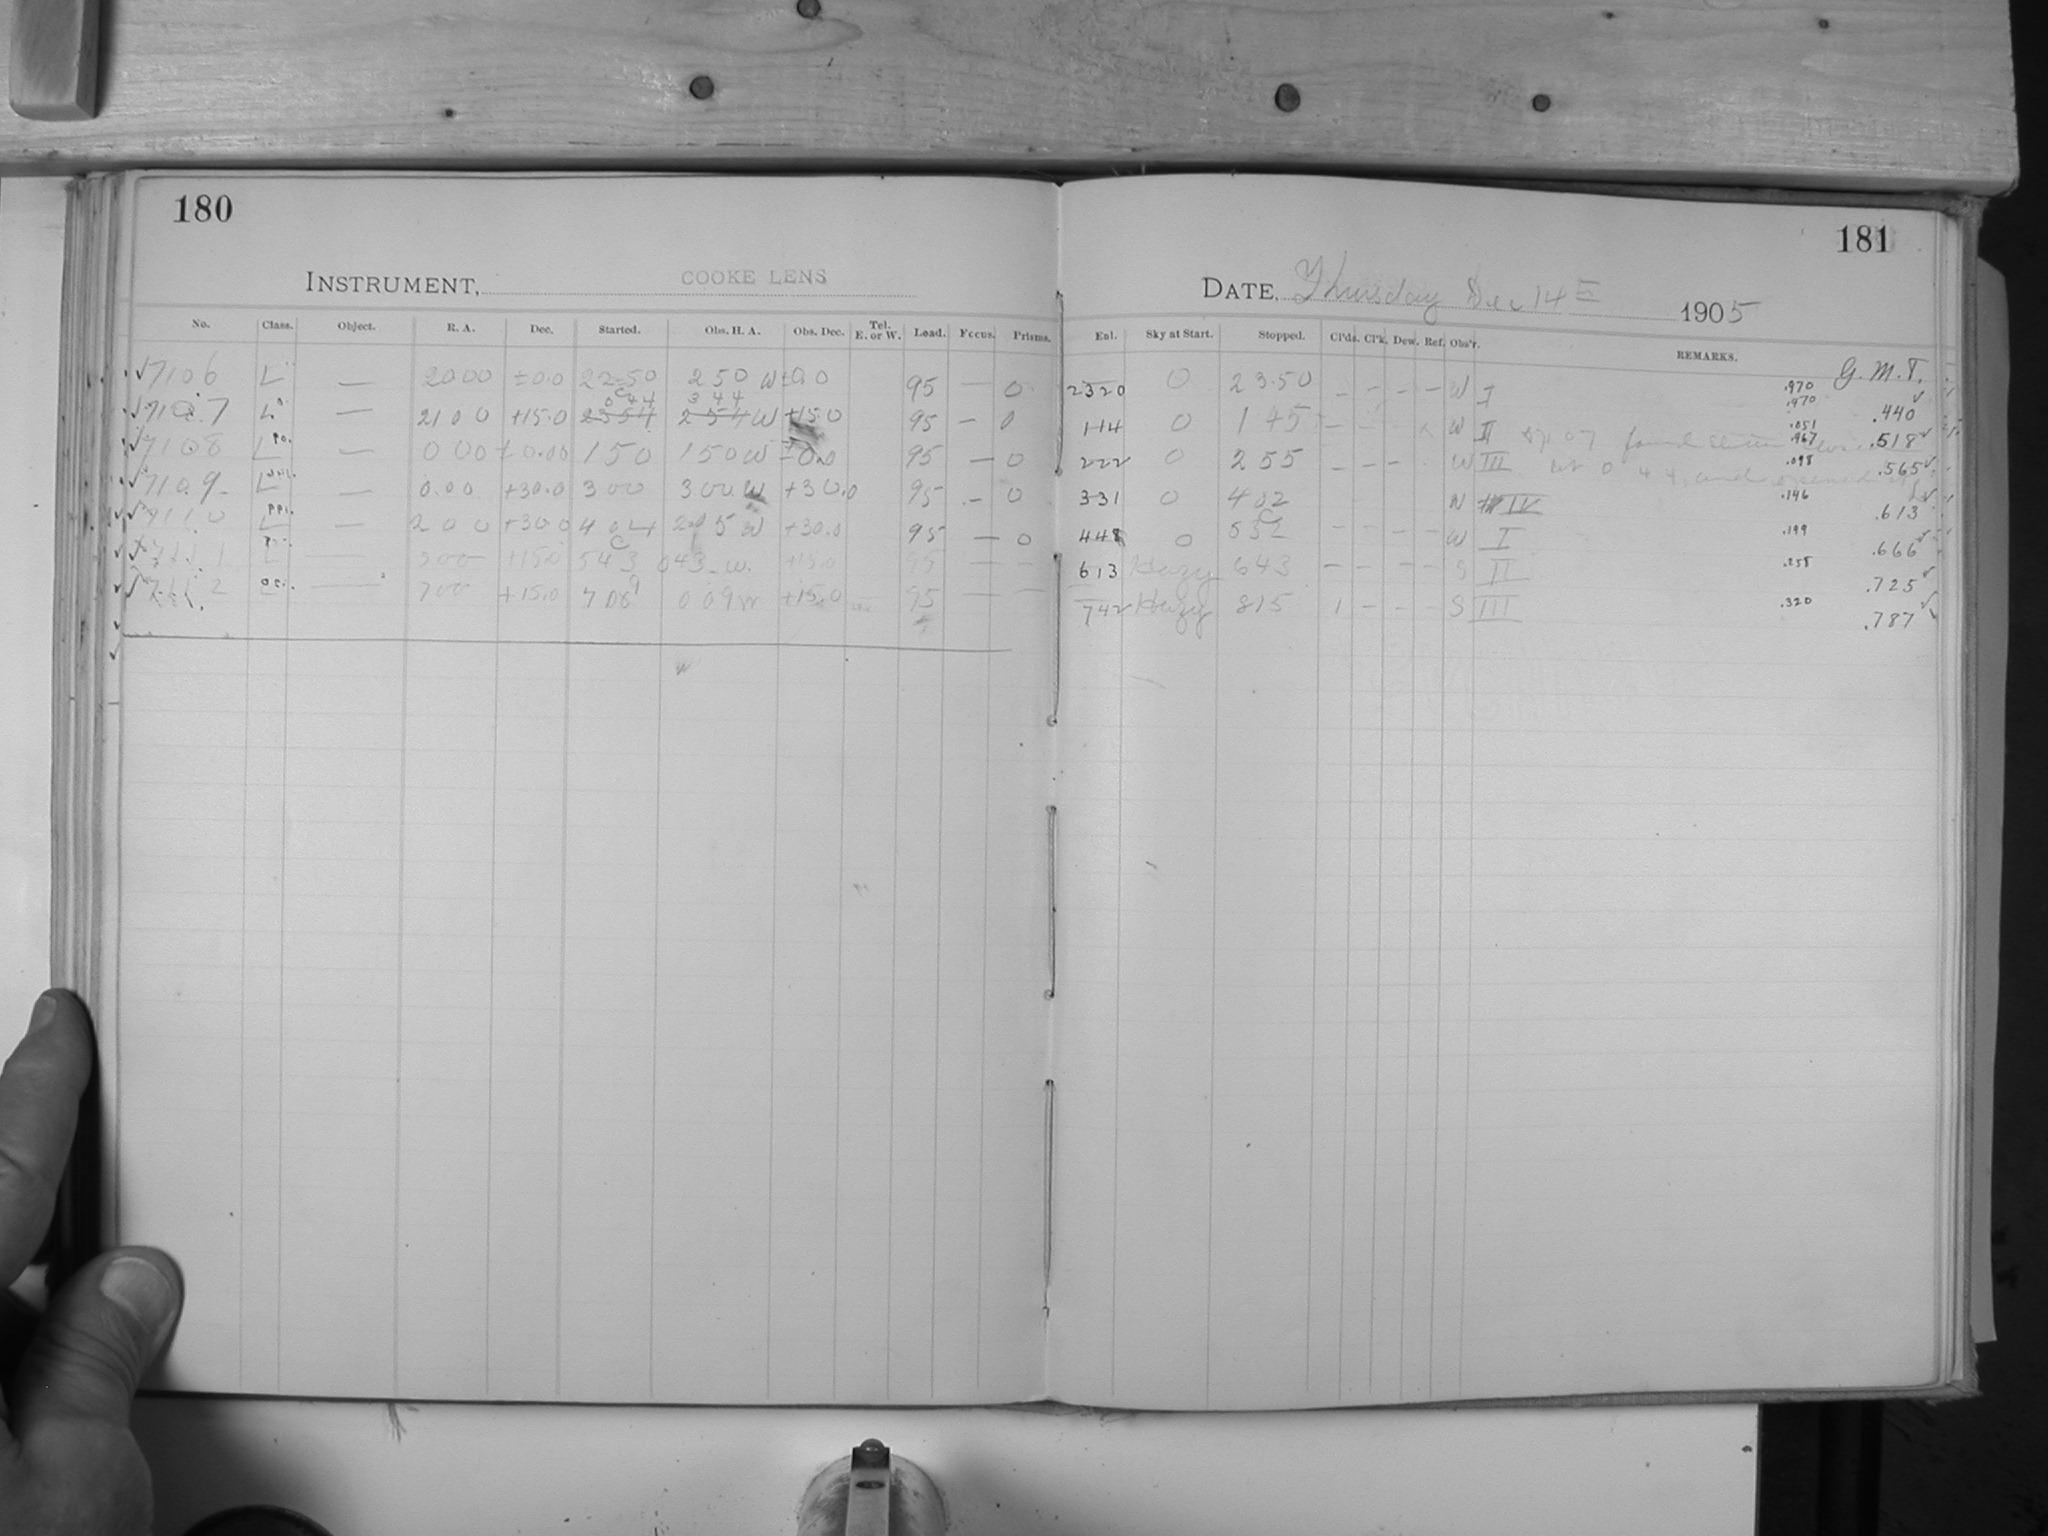 180
INSTRUMENT, COOKE LENS
No. Class. Object. R. A. Dec. Started. Obs. H. A. Obs. Dec. Tel. E. or W. Load. Focus. Prisms.
7106 L — 20 00 ±0.0 22 50 2 50 W ±0.0 95 — 0
0 44 3 44
7107 L — 21 00 +15.0 23 54 2 54 W +15.0 95 — 0
7108 L 0 00 ±0.00 1 50 1 50 W ±0.0 95 — 0
7109 L — 0.00 +30.0 3 00 3 00 W +30.0 95 — 0
7110 L — 2 00 +30.0 4 04 2 05 W +30.0 95 — 0
7111 L — 5 00 +15.0 5 43 0 43 W. +15.0 95 — —
7112 — 7 00 +15.0 7 09 0 09 W +15.0 95 — —
181
DATE, Thursday Dec 14 1905
Enl. Sky at Start. Stopped. Cl'ds. Cl'k. Dew. Ref. Obs'r. REMARKS.
G. M. T.
2320 0 23.50 — — — — W I .970
.970 .440
114 0 1 45 — — — W II 7107 found .051
.967 .518
222 0 2 55 — — — W III at 0 44, and .098 .565
331 0 4 02 N IV .146 .613
448 0 5 52 — — — — W I .199 .666
613 Hazy 6 43 — — — — S II .258 .725
742 Hazy 8 15 1 — — — S III .320 .787